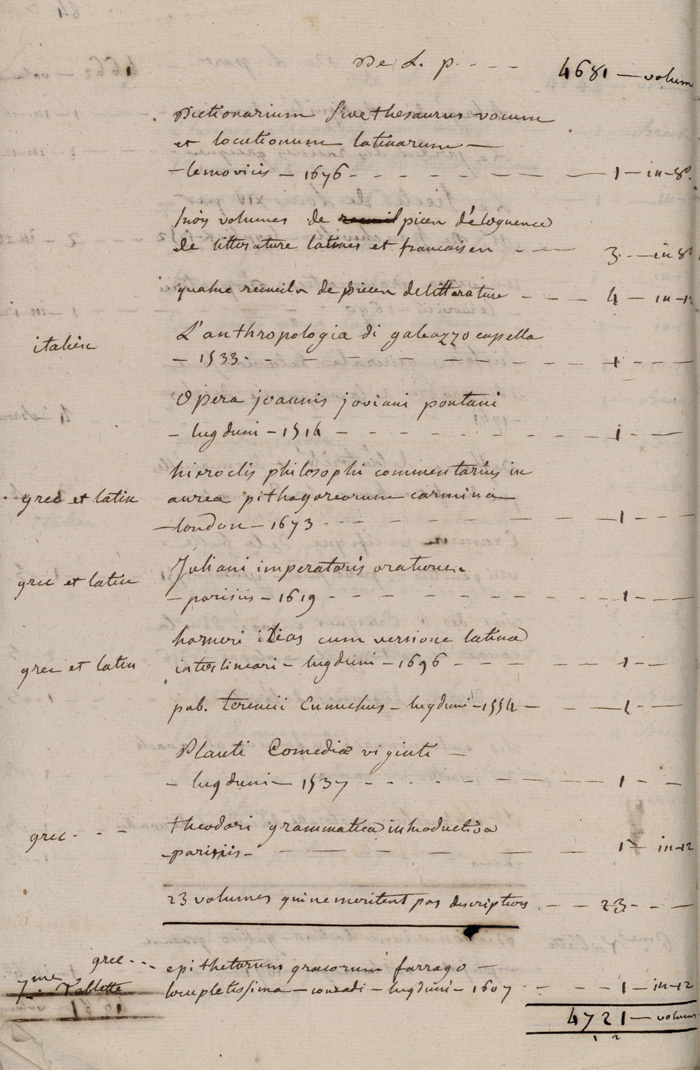 De L. p. - - - - 4681 — volum
Dictionarium sive thesaurus vocum
et locutionum latinarum —
- lemovicis - 1676 - - - - - 1 - in-8°.
trois volumes de pieces d'eloquence
de litterature latines et francaises - - - 3 - in 8°
quatre recueils de pieces de litterature - - - 4 - in-12
italien L'anthropologia di galeazzo capella
- 1533 - - - - - 1 - - -
Opera joannis joviani pontani
- lugduni - 1514 - - - - - 1 - - -
hieroclis philosophi commentarius in
grec et latin aurea pithagoreorum carmina
- london - 1673 - - - - - 1 - - -
Juliani imperatoris orationes
grec et latin - parisiis - 1619 - - - - - 1 - - -
homeri ilias cum versione latina
grec et latin interlineari - lugduni - 1696 - - - - 1 - - -
pub. terencii Eunuchus - lugduni - 1554 - - 1 - - -
Plauti Comediæ viginti -
- lugduni - 1537 - - - - - 1 - - -
grec - - - theodori grammatica introductiva
- parisiis - - - - - 1 - in-12
23 volumes qui ne meritent pas description - - 23 - - -
grec - - - epithetorum græcorum farrago -
7me Tablette locupletissima - conradi - lugduni - 1607 - - - 1 - in-12
4721 - volumes